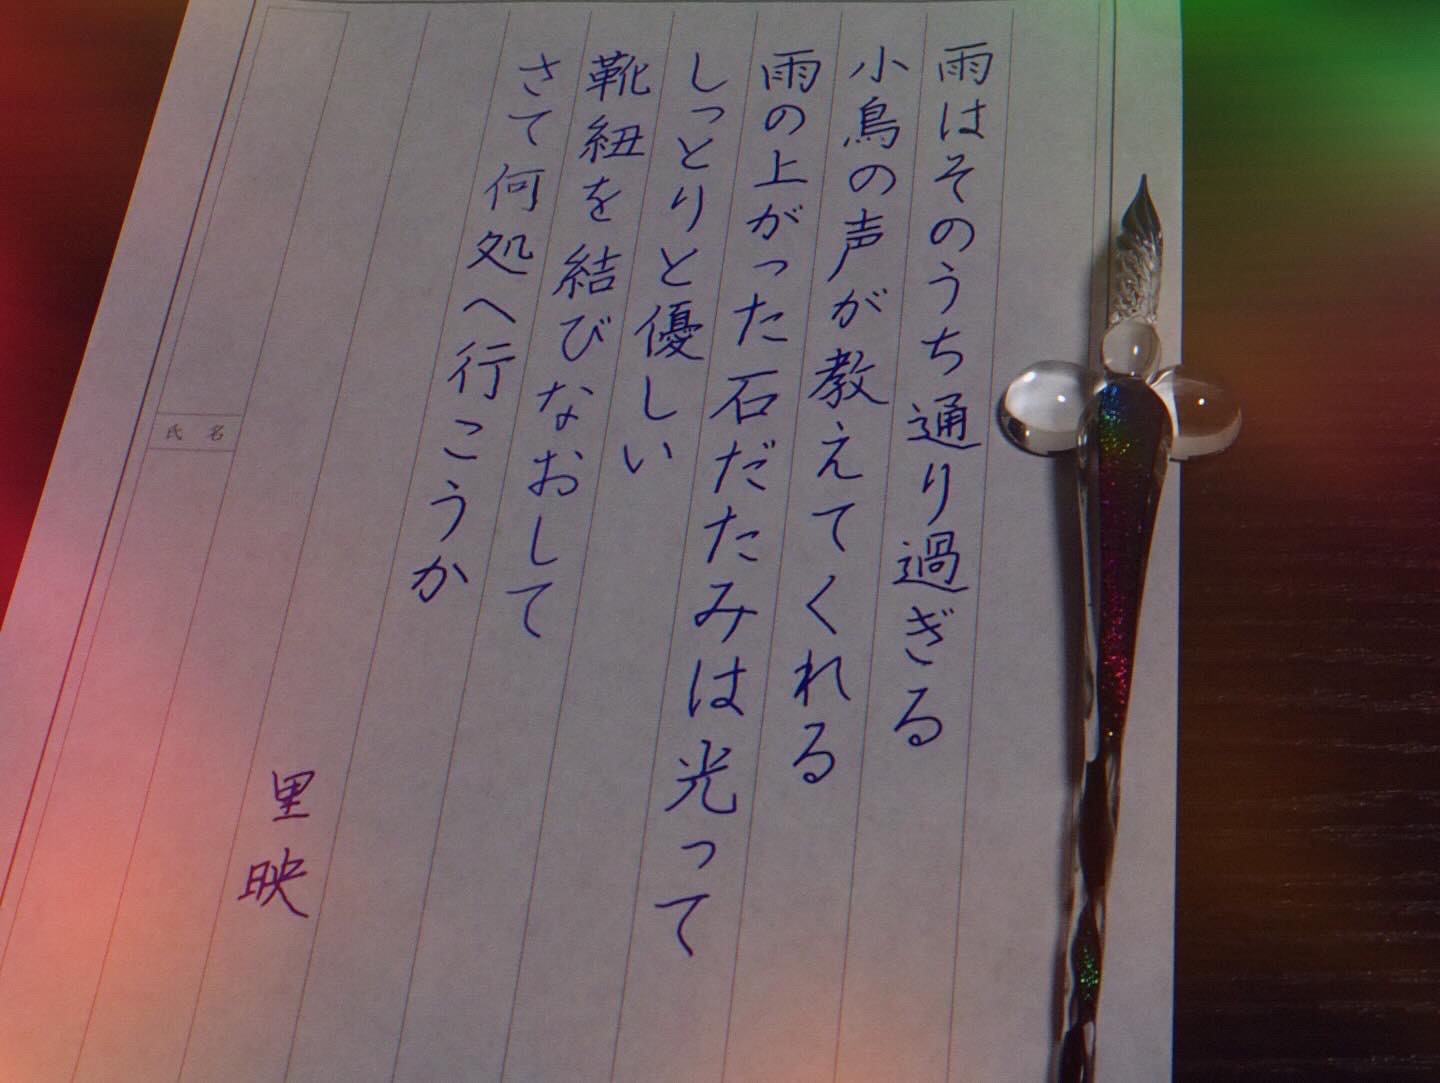 雨はそのうち通り過ぎる
小鳥の声が教えてくれる
雨の上がった石だたみは光って
しっとりと優しい
靴紐を結びなおして
さて何処へ行こうか
里映
氏名